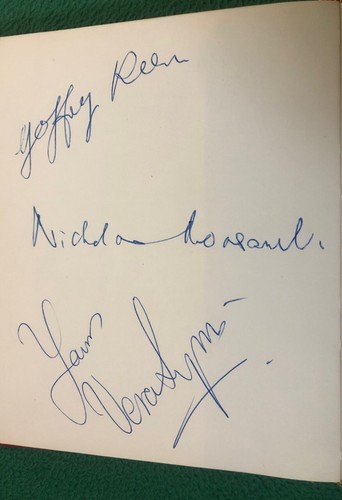 Geoffrey Keen
Nicholas Monsarrat.
Yours
Vera Lynn